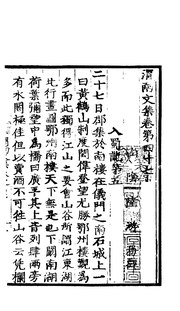 渭南文集卷第四十七
陸 游 務觀
入蜀記第五
二十七日郡集於南樓在儀門之南石城上一
曰黃鶴山制度閎偉登望尤勝鄂州樓觀為
多而此獨得江山之要會山谷所謂江東湖
北行畫圖鄂州南樓天下無是也下闞南湖
荷葉彌望中為橋曰廣平其上皆列肆兩旁
有水閣極佳但以賣酒不可往山谷云凭欄